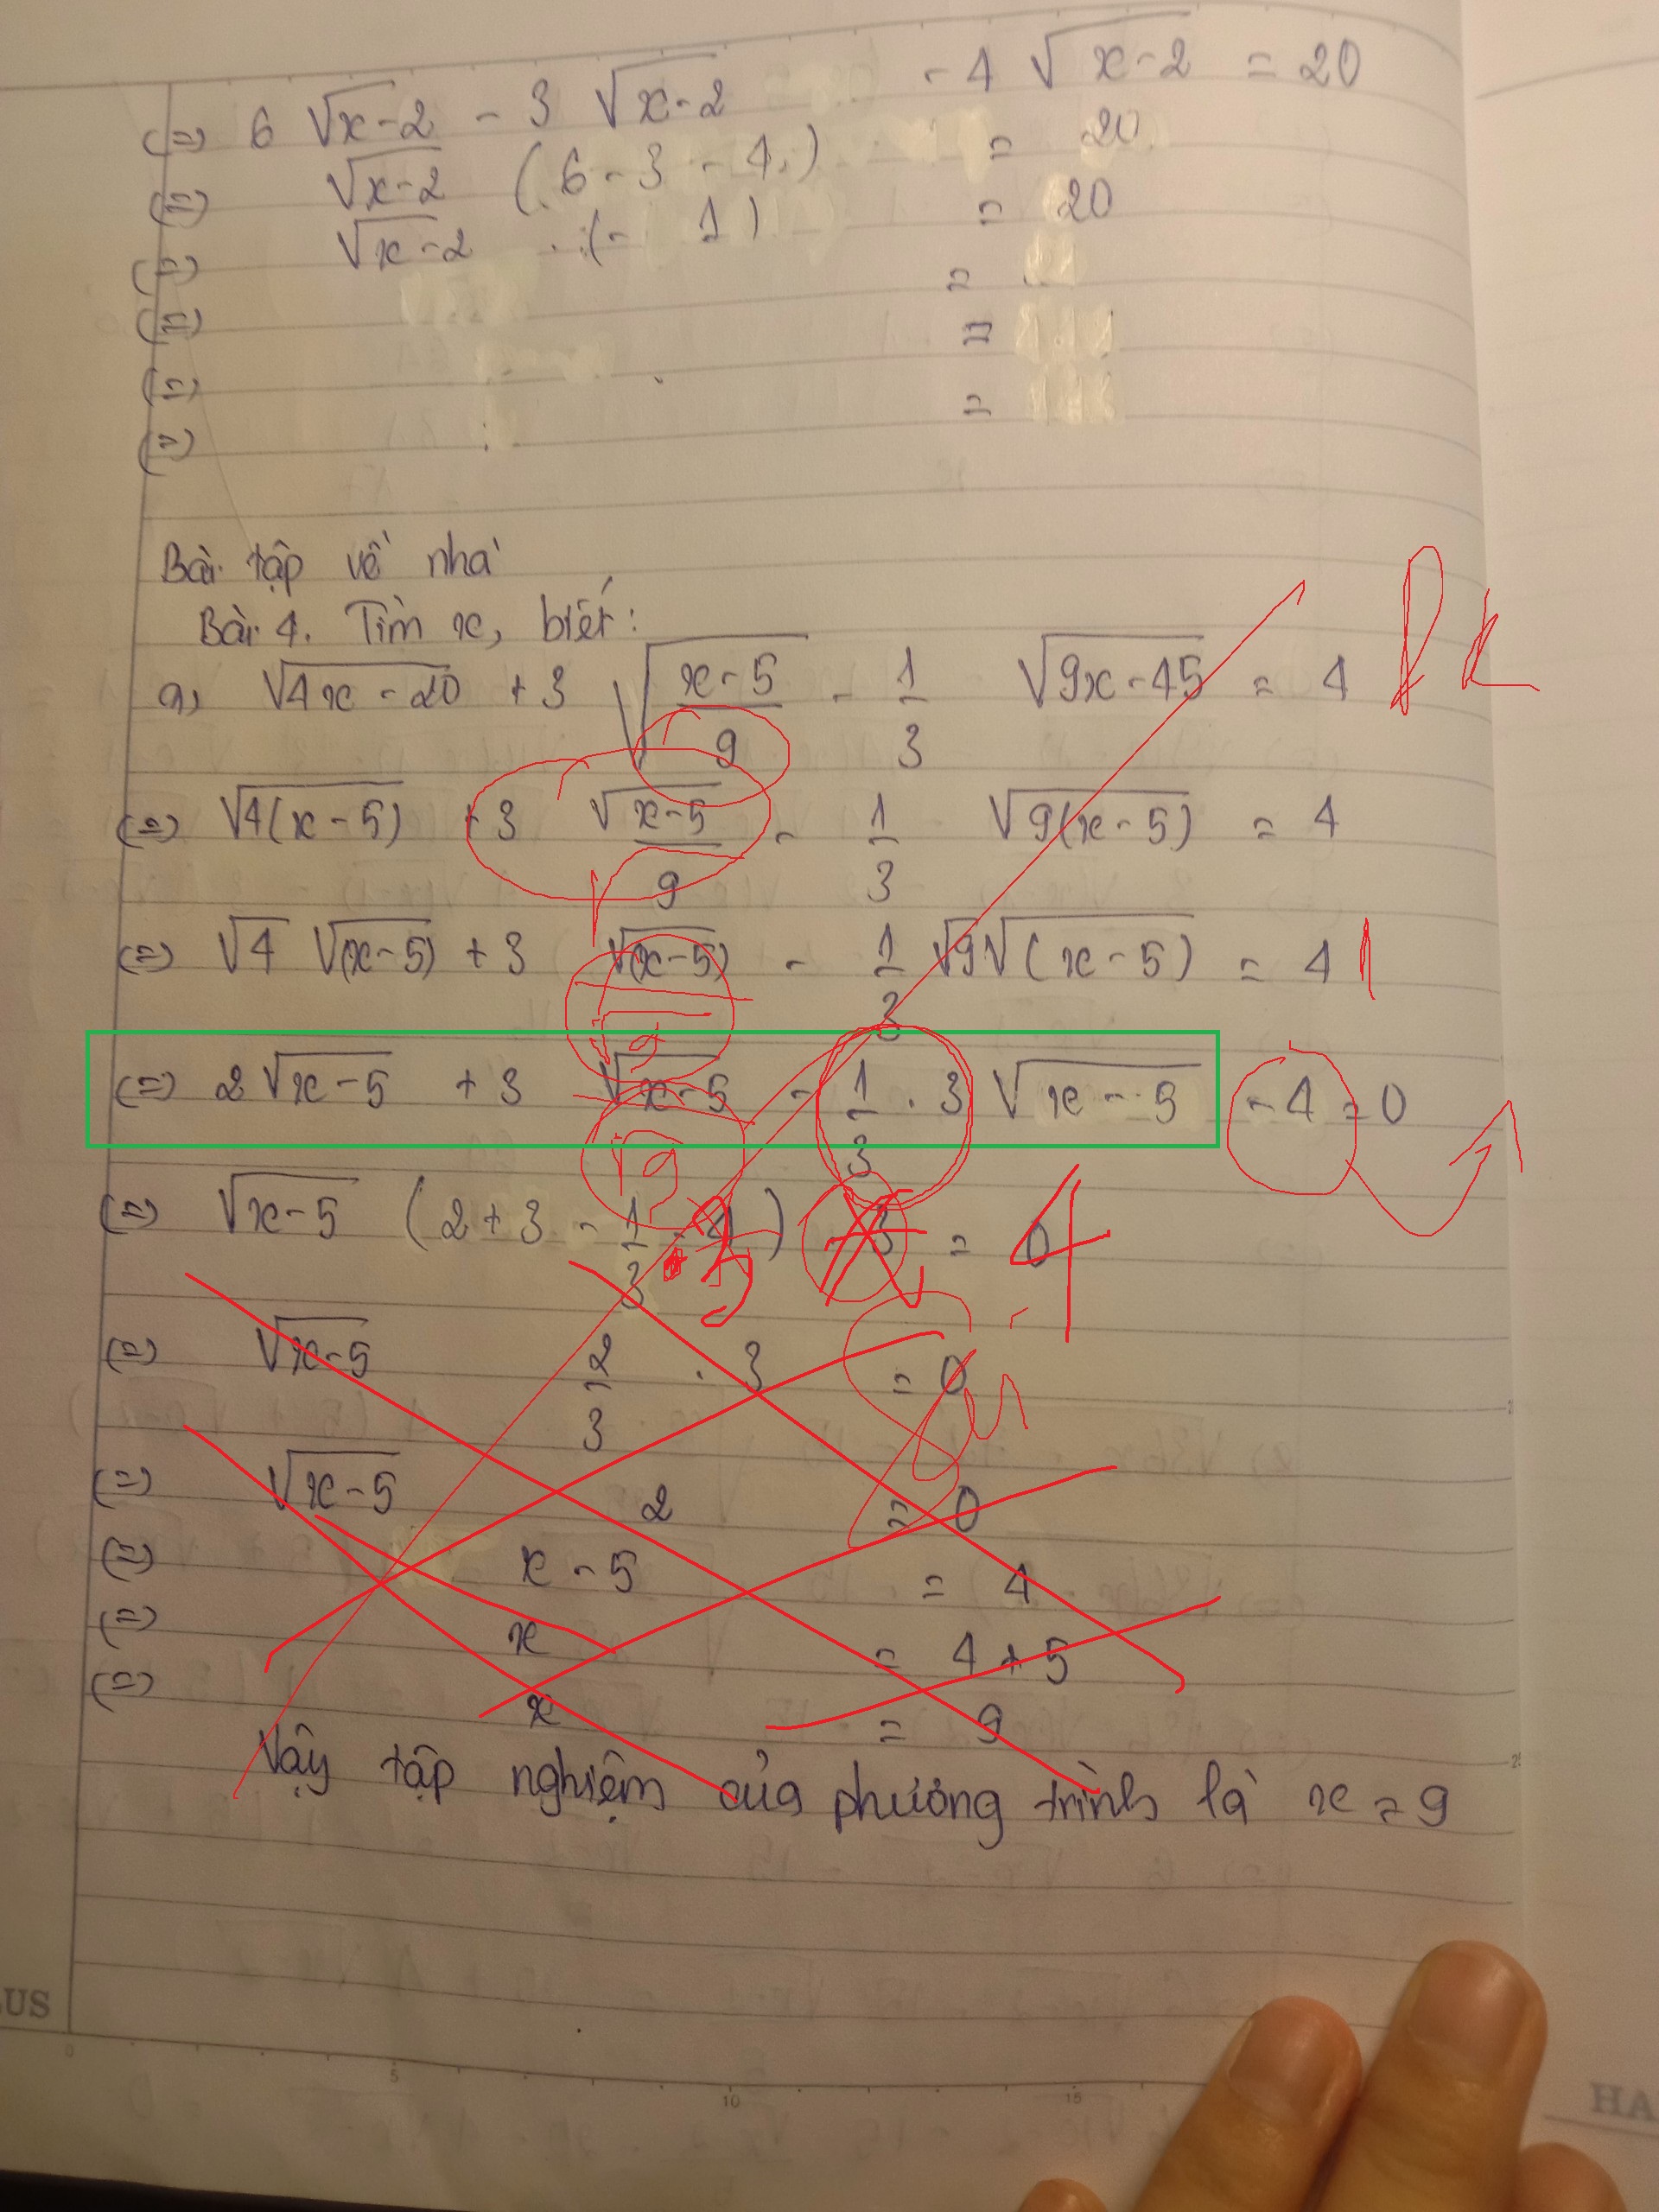 (=) 6 √x-2 - 3 √x-2 - 4 √x-2 = 20
(=) √x-2 (6-3-4) = 20
(=) √x-2 .(-1) = 20
(=) =
(=) =
(=) =
(=)
Bài tập về nhà
Bài 4. Tìm x, biết:
a, √4x-20 + 3 √(x-5)/9 - 1/3 √9x-45 = 4 ĐK
(=) √4(x-5) + 3 √x-5/9 - 1/3 √9(x-5) = 4
(=) √4 √(x-5) + 3 √(x-5) - 1/3 √9 √(x-5) = 4
√9
(=) 2√x-5 + 3 √x-5 - 1/3 . 3 √x-5 - 4 = 0
√9
(=) √x-5 (2+3-1/3-4) 3 = 0 4
(=) √x-5 2/3 . 3 = 0
(=) √x-5 2 = 0
(=) x-5 = 4
(=) x = 4+5
(=) x = 9
Vậy tập nghiệm của phương trình là x = 9
LUS
0 5 10 15
HA